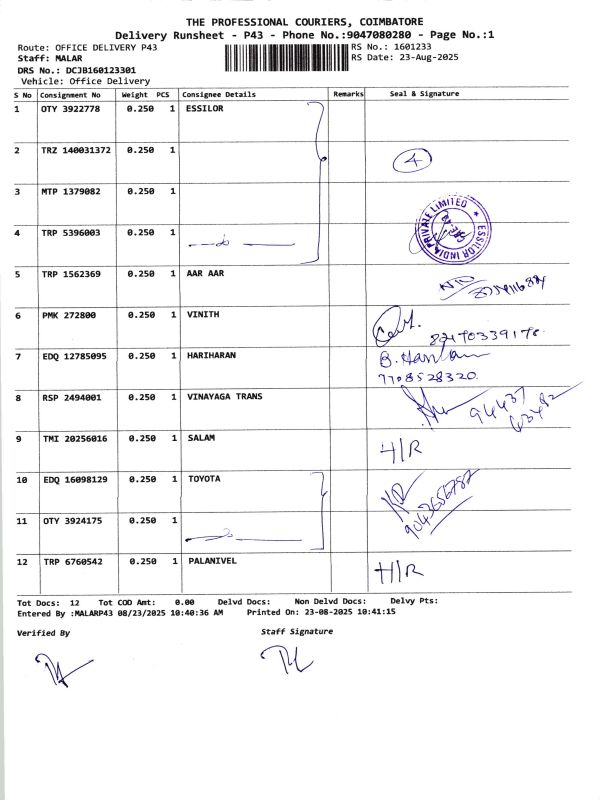 THE PROFESSIONAL COURIERS, COIMBATORE
Delivery Runsheet - P43 - Phone No.:9047080280 - Page No.:1
Route: OFFICE DELIVERY P43 RS No.: 1601233
Staff: MALAR RS Date: 23-Aug-2025
DRS No.: DCJB160123301
Vehicle: Office Delivery
S No Consignment No Weight PCS Consignee Details Remarks Seal & Signature
1 OTY 3922778 0.250 1 ESSILOR
2 TRZ 140031372 0.250 1 4
3 MTP 1379082 0.250 1
ESSILOR INDIA PRIVATE LIMITED
4 TRP 5396003 0.250 1
5 TRP 1562369 0.250 1 AAR AAR
6 PMK 272800 0.250 1 VINITH
7 EDQ 12785095 0.250 1 HARIHARAN B. Hariharan
7708528320
8 RSP 2494001 0.250 1 VINAYAGA TRANS 94437
63482
9 TMI 20256016 0.250 1 SALAM H/R
10 EDQ 16098129 0.250 1 TOYOTA
9043656782
11 OTY 3924175 0.250 1
12 TRP 6760542 0.250 1 PALANIVEL H/R
Tot Docs: 12 Tot COD Amt: 0.00 Delvd Docs: Non Delvd Docs: Delvy Pts:
Entered By :MALARP43 08/23/2025 10:40:36 AM Printed On: 23-08-2025 10:41:15
Verified By Staff Signature